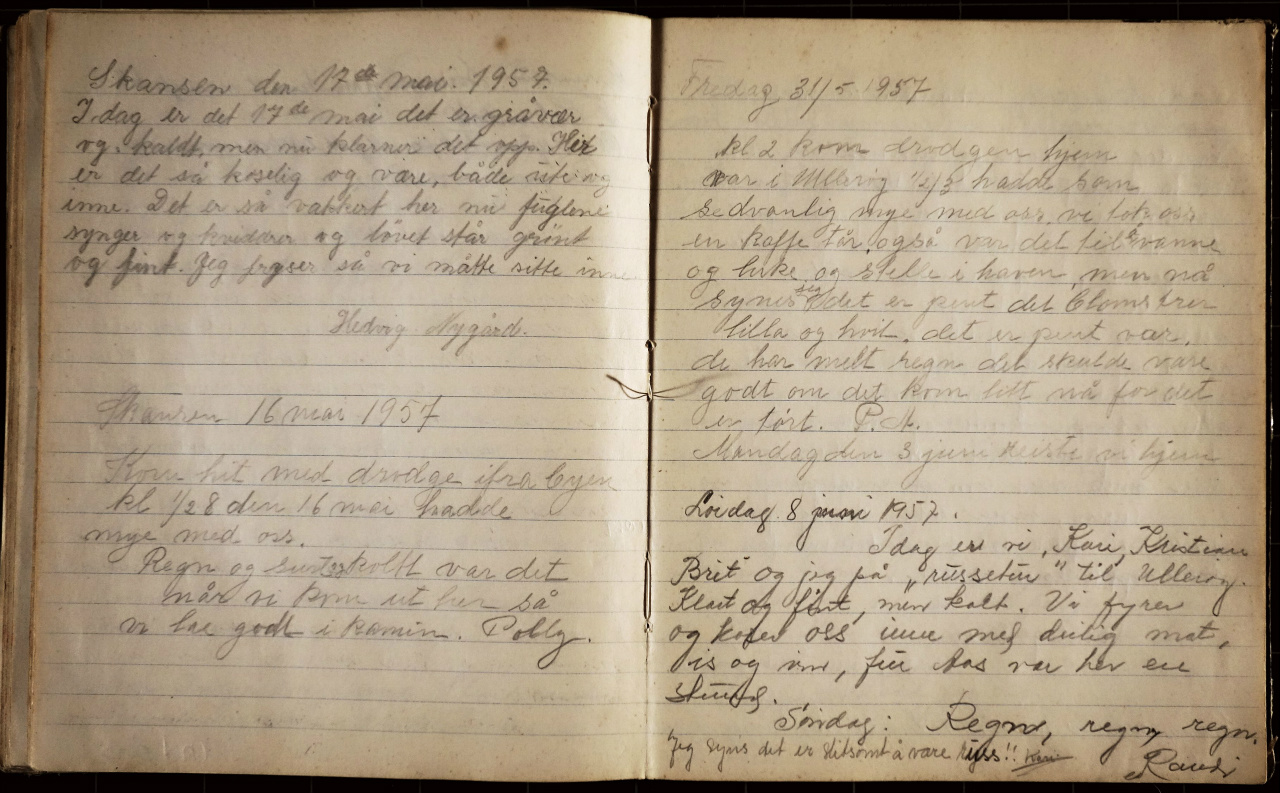 Skansen den 17de mai. 1957.
I dag er det 17de mai det er gråvær
og kaldt, men nu klarner det opp. Her
er det så koselig og være, både ute og
inne. Det er så vakkert her nu fuglene
synger og kvidrer og løvet står grønt
og fint. Jeg fryser så vi måtte sitte inne
Hedvig Nygård.
Skansen 16 mai 1957
Kom hit med drodge ifra byen
kl 1/2 8 den 16 mai hadde
mye med oss.
Regn og surt kaldt var det
når vi kom ut her så
vi la godt i kamin. Polly.
Fredag 31/5 1957
kl 2 kom drodgen hjem
var i Ullerøy 1/2 3 hadde som
sedvanlig mye med oss, vi tok oss
en kaffe tår også var det til å vanne
og luke og stelle i haven, men nå
synes jeg det er pent det blomstrer
lilla og hvit. det er pent vær.
de har melt regn det skulde være
godt om det kom litt nå for det
er tørt. P. N.
Mandag den 3 juni reiste vi hjem
Lördag 8 juni 1957.
Idag er vi, Kari, Kristian
Brit og jeg på „russetur" til Ullerøy.
Klart og fint, men kalt. Vi fyrer
og koser oss inne med deilig mat,
is og vin, fru Aas var her en
stund.
Søndag: Regn, regn, regn.
Jeg syns det er slitsomt å være russ!! Kari
Randi